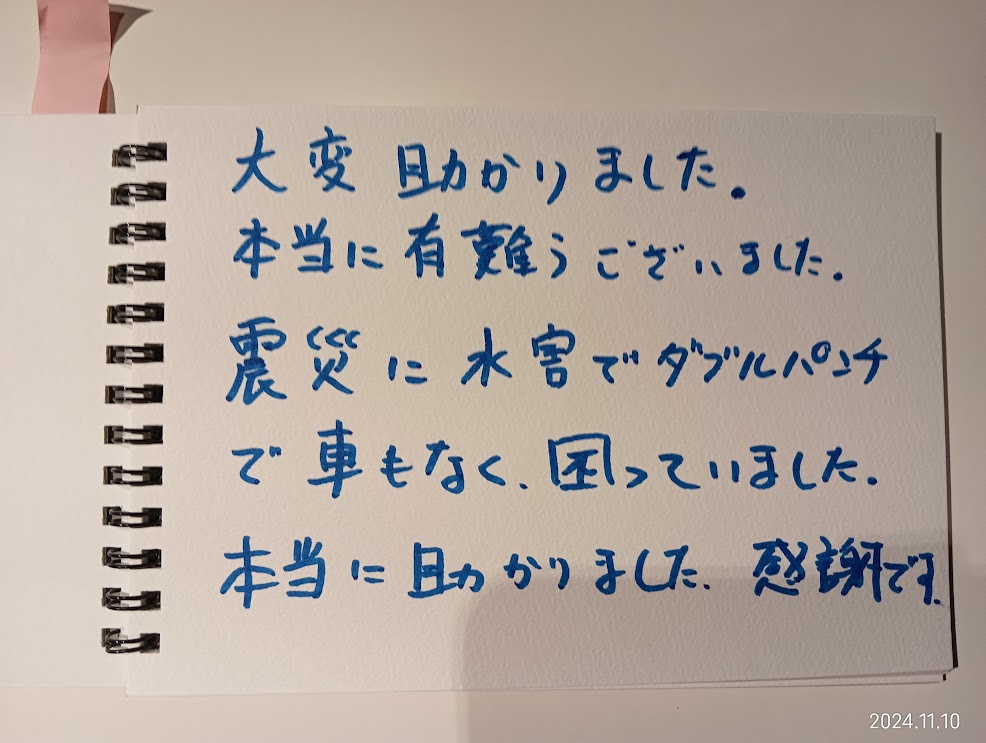 大変 助かりました。
本当に有難うございました。
震災に水害でダブルパンチ
で車もなく、困っていました。
本当に助かりました。感謝です。
2024.11.10